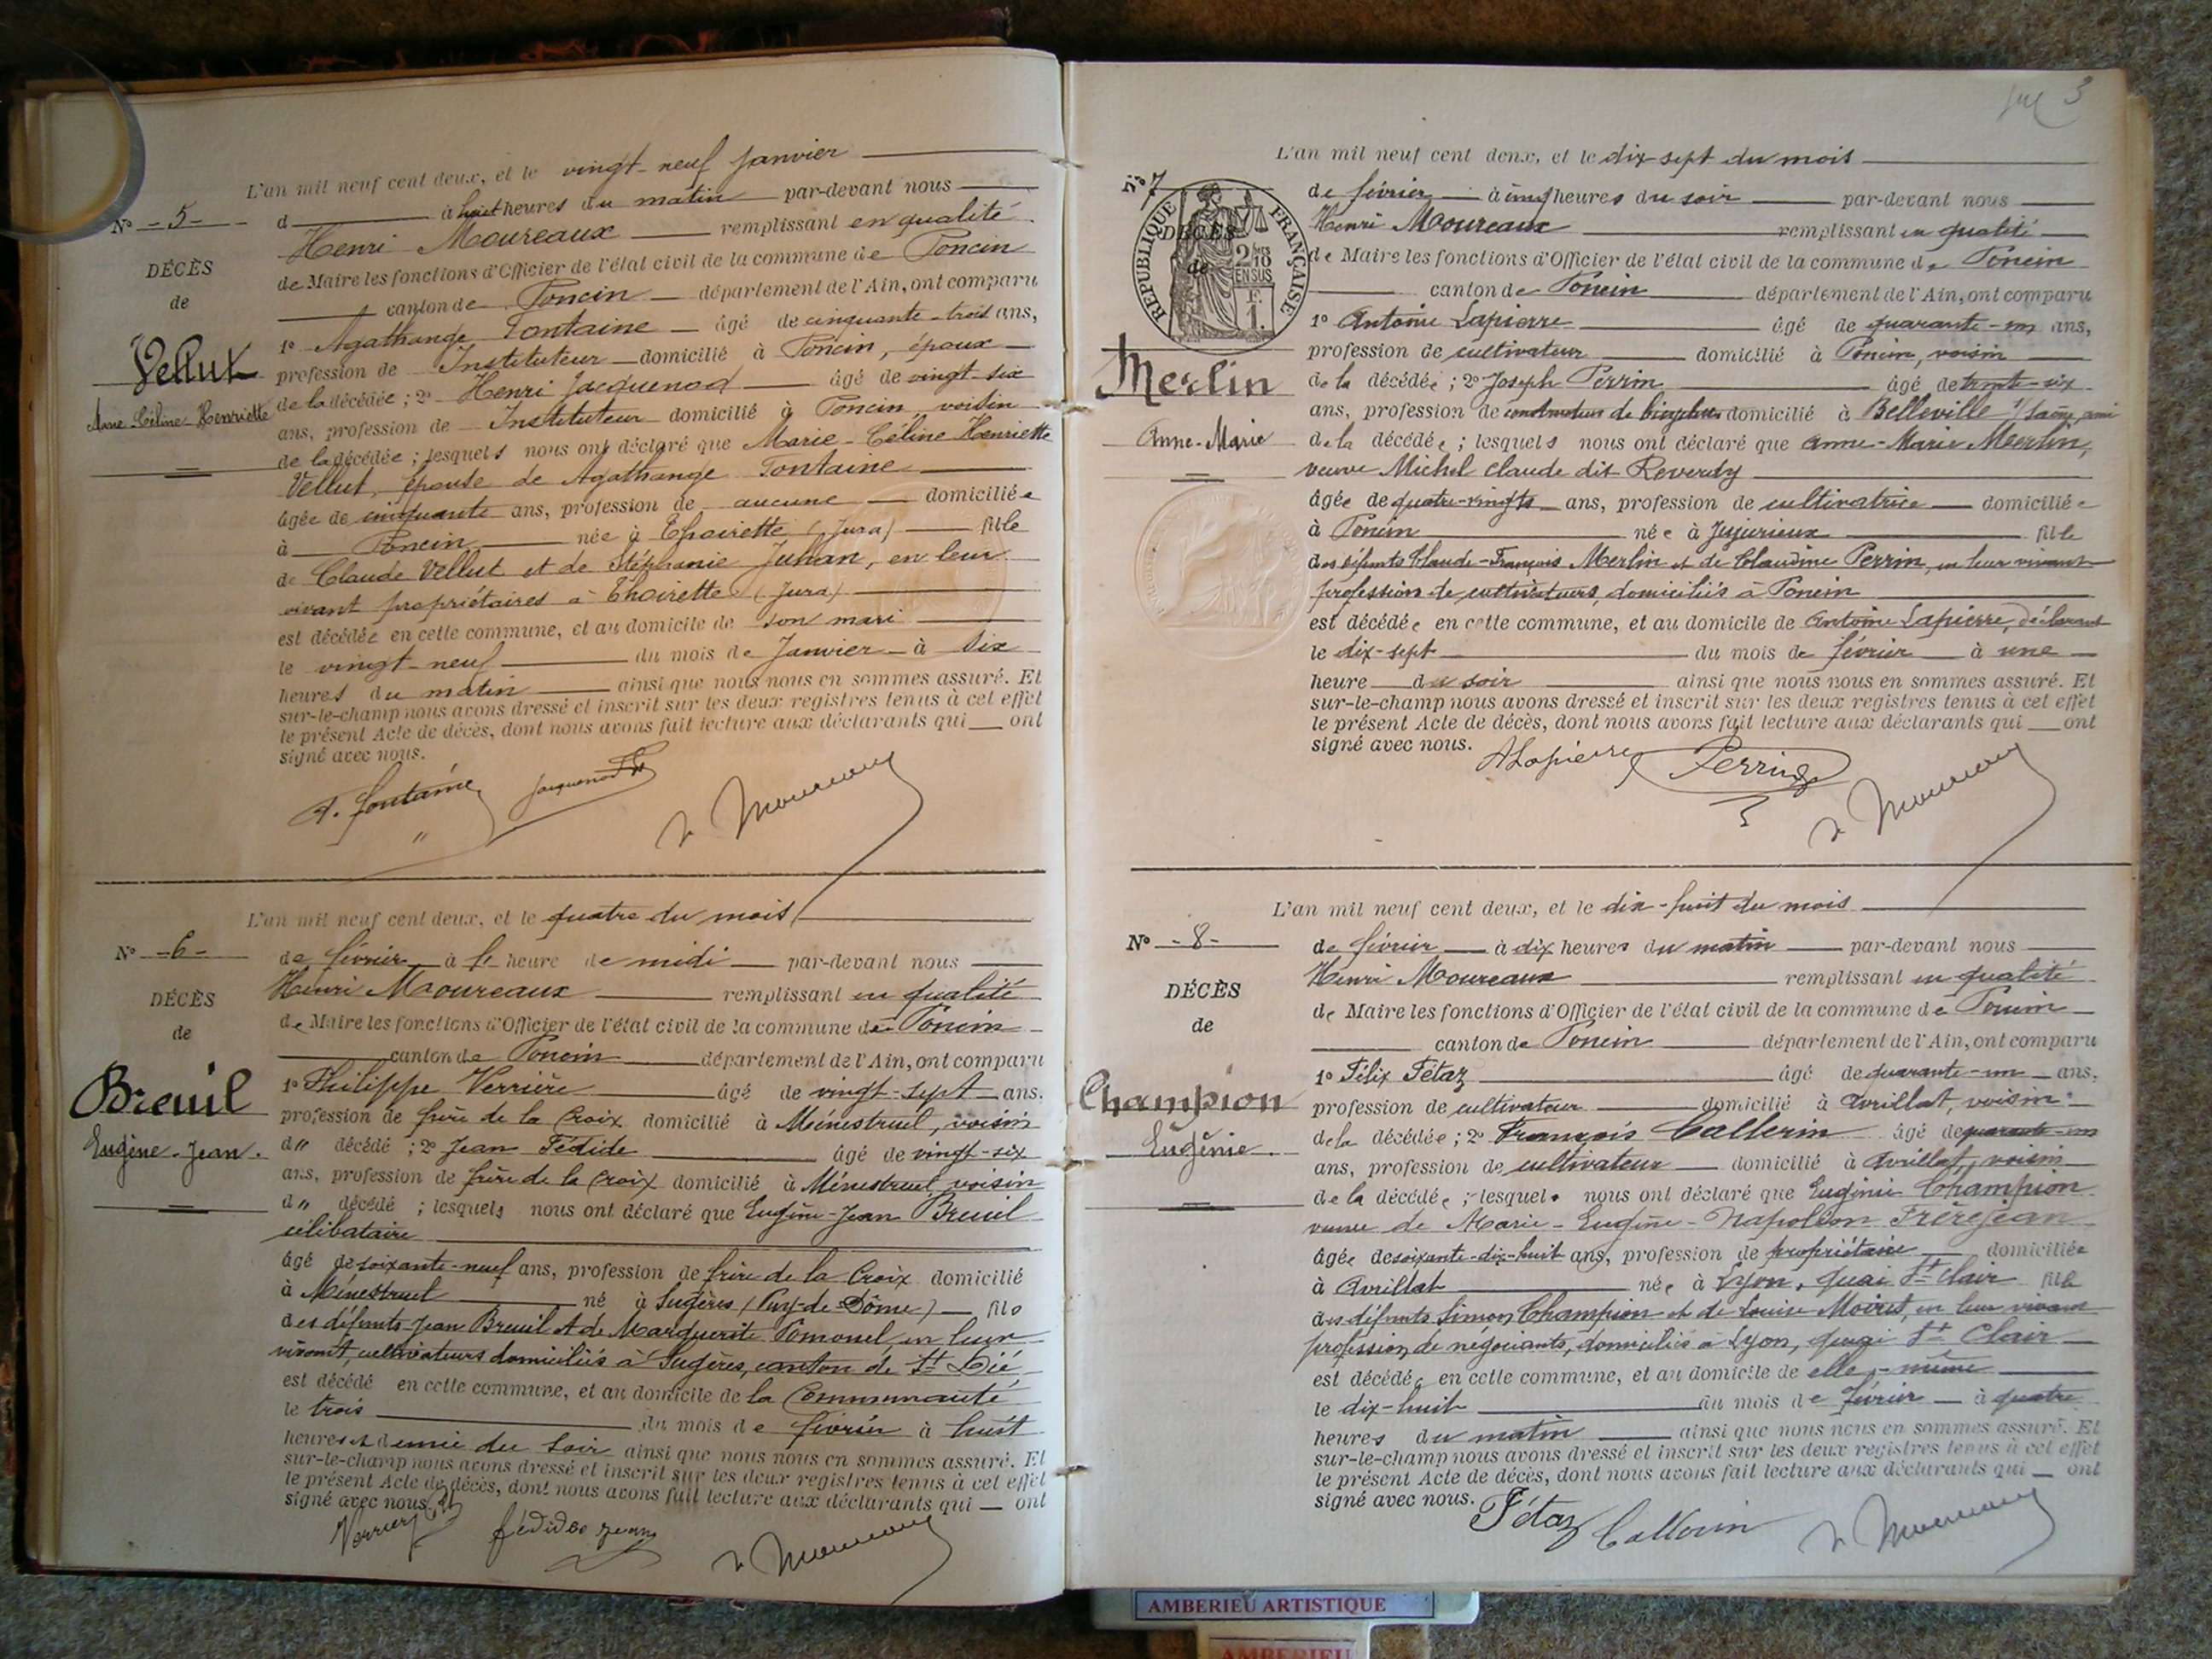 L'an mil neuf cent deux, et le vingt-neuf Janvier
N° -5-
d à huit heures du matin par-devant nous
Henri Moureaux remplissant en qualité
DÉCÈS
de Maire les fonctions d'Officier de l'état civil de la commune de Poncin
de
canton de Poncin département de l'Ain, ont comparu
1° Agathange Fontaine âgé de cinquante-trois ans,
Vellut
profession de Instituteur domicilié à Poncin, époux
de la décédée ; 2° Henri Jacquenod âgé de vingt-six
Marie Céline Henriette
ans, profession de Instituteur domicilié à Poncin, voisin
de la décédée ; lesquels nous ont déclaré que Marie-Céline Henriette
Vellut, épouse de Agathange Fontaine
âgée de cinquante ans, profession de aucune domiciliée
à Poncin née à Thoirette (Jura) fille
de Claude Vellut et de Stéphanie Juhan, en leur
vivant propriétaires à Thoirette (Jura)
est décédée en cette commune, et au domicile de son mari
le vingt-neuf du mois de Janvier à six
heures du matin ainsi que nous nous en sommes assuré. Et
sur-le-champ nous avons dressé et inscrit sur les deux registres tenus à cet effet
le présent Acte de décès, dont nous avons fait lecture aux déclarants qui ont
signé avec nous.
A. Fontaine Jacquenod H. Moureaux
L'an mil neuf cent deux, et le quatre du mois
N° -6-
de février à 1 heure de midi par-devant nous
Henri Moureaux remplissant en qualité
DÉCÈS
de Maire les fonctions d'Officier de l'état civil de la commune de Poncin
de
canton de Poncin département de l'Ain, ont comparu
1° Philippe Verrière âgé de vingt-sept ans,
Breuil
profession de frère de la Croix domicilié à Ménestruel, voisin
d" décédé ; 2° Jean Fédide âgé de vingt-six
Eugène-Jean.
ans, profession de frère de la Croix domicilié à Ménestruel voisin
d" décédé ; lesquels nous ont déclaré que Eugène-Jean Breuil
célibataire
âgé de soixante-neuf ans, profession de frère de la Croix domicilié
à Ménestruel né à Sugères (Puy-de-Dôme) fils
des défunts Jean Breuil et de Marguerite Pomonel en leur
vivant, cultivateurs domiciliés à Sugères, canton de St Dié
est décédé en cette commune, et au domicile de la Communauté
le trois du mois de février à huit
heures et demie du soir ainsi que nous nous en sommes assuré. Et
sur-le-champ nous avons dressé et inscrit sur les deux registres tenus à cet effet
le présent Acte de décès, dont nous avons fait lecture aux déclarants qui ont
signé avec nous.
fédide jean H. Moureaux
3
L'an mil neuf cent deux, et le dix-sept du mois
N° 7
de février à cinq heures du soir par-devant nous
RÉPUBLIQUE FRANÇAISE
2/10 EN SUS
F. 1.
DÉCÈS
de
Henri Moureaux remplissant en qualité
de Maire les fonctions d'Officier de l'état civil de la commune de Poncin
canton de Poncin département de l'Ain, ont comparu
1° Antoine Lapierre âgé de quarante-un ans,
profession de cultivateur domicilié à Poncin, voisin
Merlin
de la décédée ; 2° Joseph Perrin âgé de trente-six
ans, profession de constructeur de bicyclettes domicilié à Belleville s/Saône, ami
Anne-Marie
de la décédée ; lesquels nous ont déclaré que Anne-Marie Merlin,
veuve Michel Claude dit Reverdy
âgée de quatre-vingts ans, profession de cultivatrice domiciliée
à Poncin née à Jujurieux fille
des défunts Claude-François Merlin et de Claudine Perrin, en leur vivant
profession de cultivateurs, domiciliés à Poncin
est décédée en cette commune, et au domicile de Antoine Lapierre, déclarant
le dix-sept du mois de février à une
heure du soir ainsi que nous nous en sommes assuré. Et
sur-le-champ nous avons dressé et inscrit sur les deux registres tenus à cet effet
le présent Acte de décès, dont nous avons fait lecture aux déclarants qui ont
signé avec nous.
ALapierre Perrin H. Moureaux
L'an mil neuf cent deux, et le dix-huit du mois
N° -8-
de février à dix heures du matin par-devant nous
Henri Moureaux remplissant en qualité
DÉCÈS
de Maire les fonctions d'Officier de l'état civil de la commune de Poncin
de
canton de Poncin département de l'Ain, ont comparu
1° Félix Fétaz âgé de quarante-un ans,
Champion
profession de cultivateur domicilié à Avrillat, voisin
de la décédée ; 2° François Callerin âgé de quarante-un
Eugénie.
ans, profession de cultivateur domicilié à Avrillat, voisin
de la décédée ; lesquels nous ont déclaré que Eugénie Champion
veuve de Marie-Eugène-Napoléon Frèrejean
âgée de soixante-dix-huit ans, profession de propriétaire domiciliée
à Avrillat née à Lyon, quai St Clair fille
des défunts Simon Champion et de Louise Moiret, en leur vivant
profession de négociants, domiciliés à Lyon, quai St Clair
est décédée en cette commune, et au domicile de elle-même
le dix-huit du mois de février à quatre
heures du matin ainsi que nous nous en sommes assuré. Et
sur-le-champ nous avons dressé et inscrit sur les deux registres tenus à cet effet
le présent Acte de décès, dont nous avons fait lecture aux déclarants qui ont
signé avec nous.
Fétaz Callerin H. Moureaux
AMBERIEU ARTISTIQUE
AMBERIEU